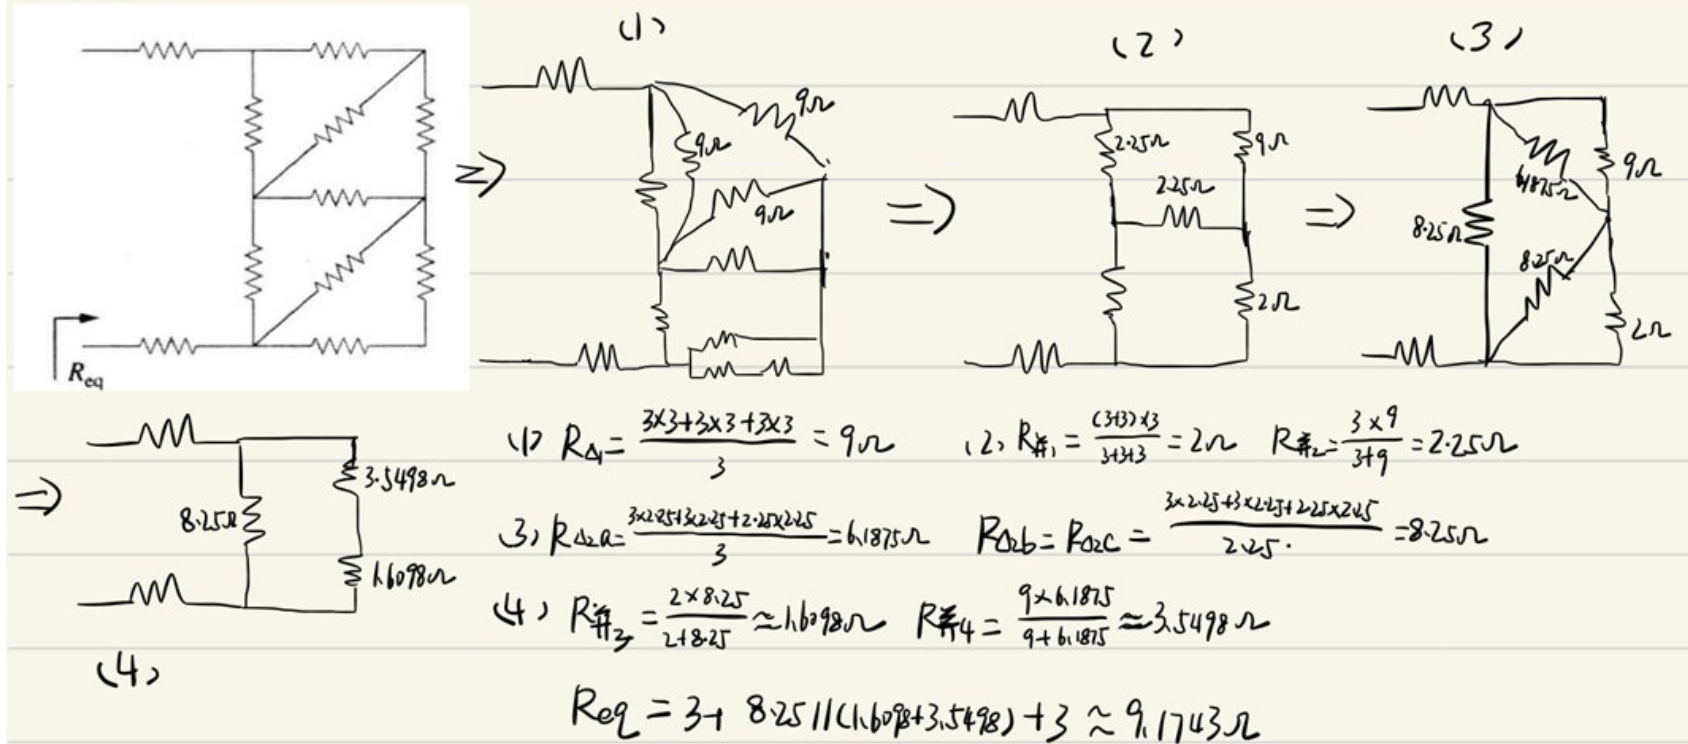 (1)
(2)
(3)
9Ω
9Ω
9Ω
2.25Ω
9Ω
2.25Ω
2Ω
9Ω
6.1875Ω
8.25Ω
8.25Ω
2Ω
Req
⇒
⇒
⇒
⇒
3.5498Ω
8.25Ω
1.6098Ω
(4)
(1) R△1 = (3×3+3×3+3×3)/3 = 9Ω (2) R并1 = ((3+3)×3)/(3+3+3) = 2Ω R并2 = (3×9)/(3+9) = 2.25Ω
3) R△2a = (3×2.25+3×2.25+2.25×2.25)/3 = 6.1875Ω R△2b = R△2c = (3×2.25+3×2.25+2.25×2.25)/2.25 = 8.25Ω
(4) R并3 = (2×8.25)/(2+8.25) ≈ 1.6098Ω R并4 = (9×6.1875)/(9+6.1875) ≈ 3.5498Ω
Req = 3+ 8.25//(1.6098+3.5498)+3 ≈ 9.1743Ω